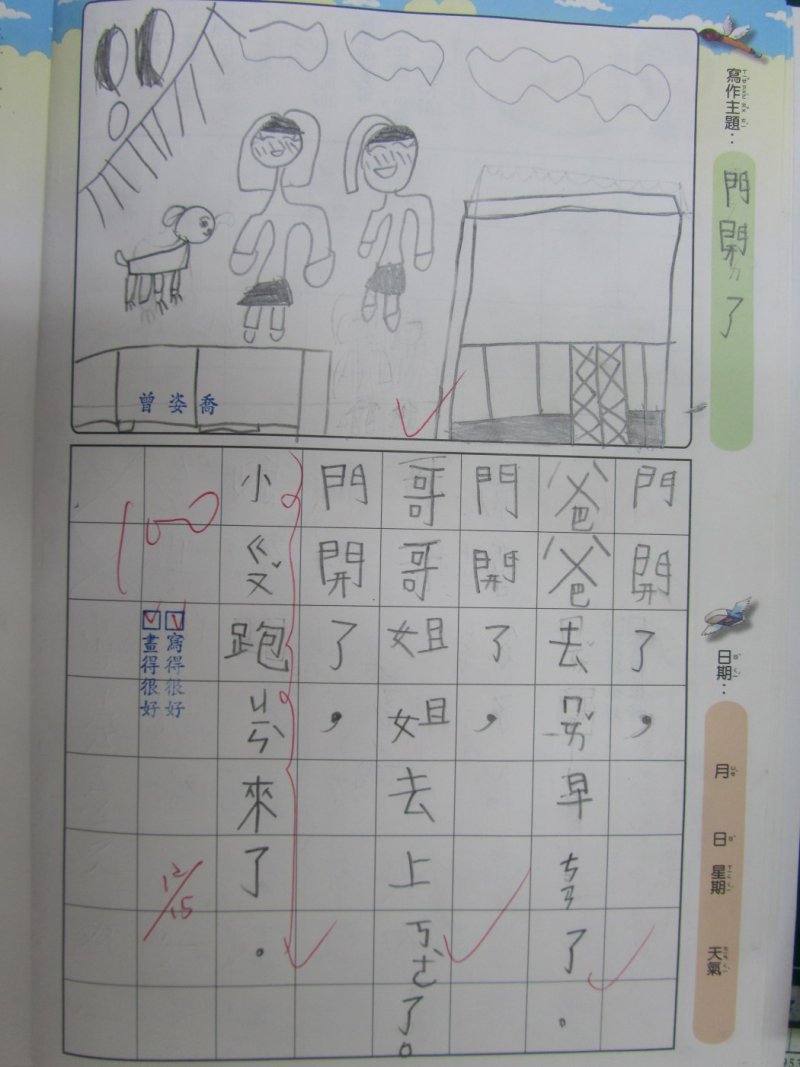 寫作主題：
門開了
日期：
月 日 星期 天氣
曾姿喬
門開了，
爸爸去ㄇㄞˇ早ㄘㄢ了。
門開了，
哥哥姐姐去上ㄎㄜˋ了。
門開了，
小ㄍㄡˇ跑ㄐㄧㄣˋ來了。
100
寫得很好
畫得很好
12/15